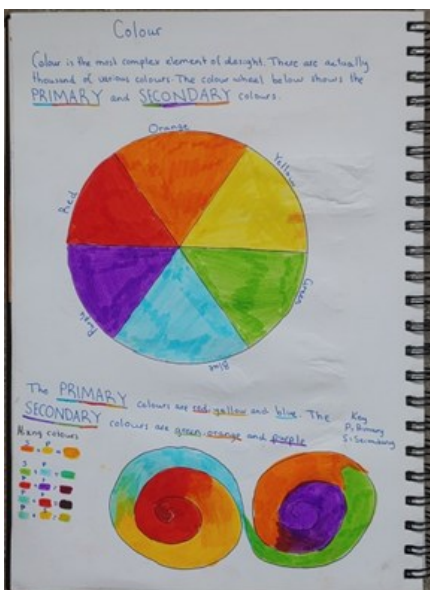 Colour
Colour is the most complex element of desight. There are actually
thousand of various colours. The colour wheel below shows the
PRIMARY and SECONDARY colours.
Orange
Yellow
Red
Green
Purple
Blue
The PRIMARY colours are red, yellow and blue. The
SECONDARY colours are green, orange and purple
Key
P: Primary
S: Secondary
Mixing colours
S P